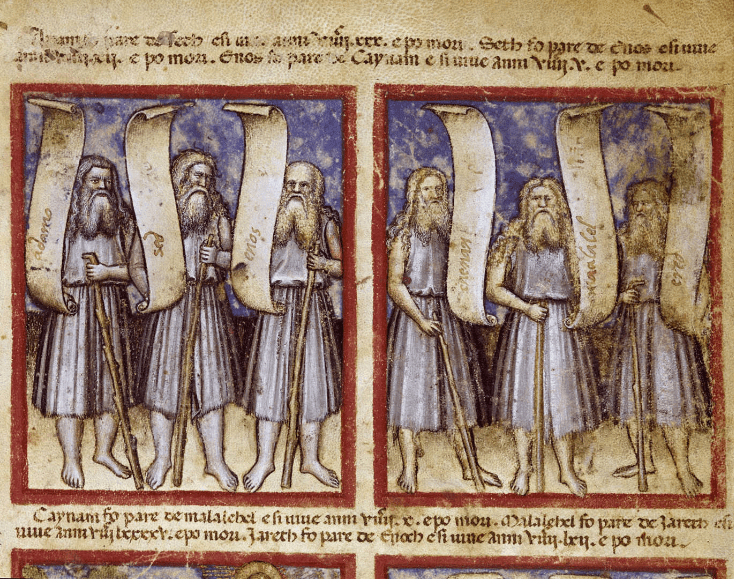 pare de Seth esi uiue anni .xxx. e po mori. Seth fo pare de Enos e si uiue
anni .xii. e po mori. Enos fo pare de Caynam e si uiue anni viiii.v. e po mori.
adamo
set
enos
chenan
Caynam fo pare de malalehel e si uiue anni viiii.x. e po mori. Malalehel fo pare de Jareth e si
uiue anni viii.lxxxxv. e po mori. Jareth fo pare de Enoch e si uiue anni viiii.lxii. e po mori.